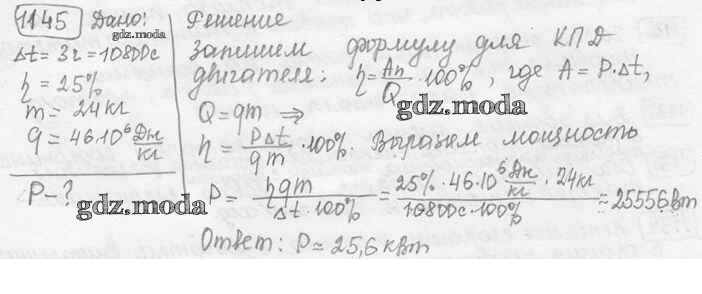 1145 Дано:
gdz.moda
Δt = 3ч = 10800с
η = 25%
m = 24кг
q = 46·10⁶ Дж/кг
P - ?
gdz.moda
Решение
Запишем формулу для КПД
двигателя: η = Aп/Q · 100%, где A = P·Δt,
gdz.moda
Q = qm ⇒
η = PΔt/qm · 100%. Выразим мощность
P = ηqm/Δt·100% = 25%·46·10⁶ Дж/кг · 24кг/10800с·100% ≈ 25556Вт
Ответ: P ≈ 25,6 кВт